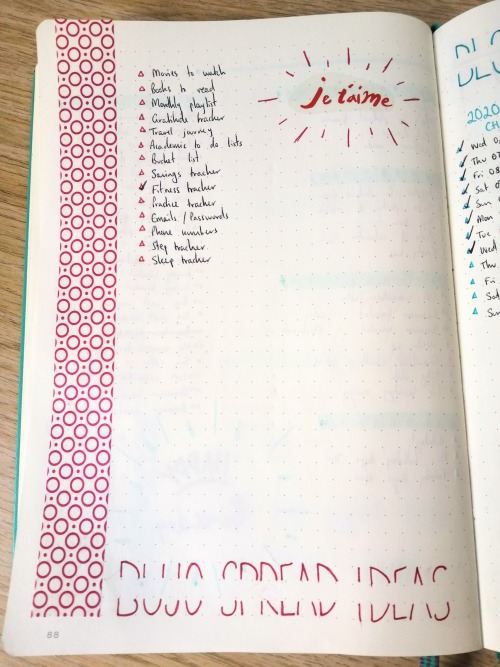 Movies to watch
Books to read
Monthly playlist
Gratitude tracker
Travel journey
Academic to do lists
Bucket list
Savings tracker
Fitness tracker
Practice tracker
Emails / Passwords
Phone numbers
Step tracker
Sleep tracker
je t'aime
BUJO SPREAD IDEAS
88
2020
Wed
Thu 07
Fri 08
Sat
Sun
Mon
Tue
Wed
Thu
Fri
Sat
Sun